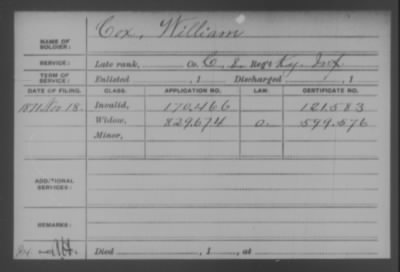 NAME OF SOLDIER: Cox, William
SERVICE: Late rank, Co. C, 8 Reg't Ky. Inf.
TERM OF SERVICE: Enlisted , 1 Discharged , 1
DATE OF FILING. CLASS. APPLICATION NO. LAW. CERTIFICATE NO.
1871 Nov 18. Invalid, 170.466 121.583
Widow, 829.674 599.576
Minor,
ADDITIONAL SERVICES:
REMARKS:
Died , 1 , at